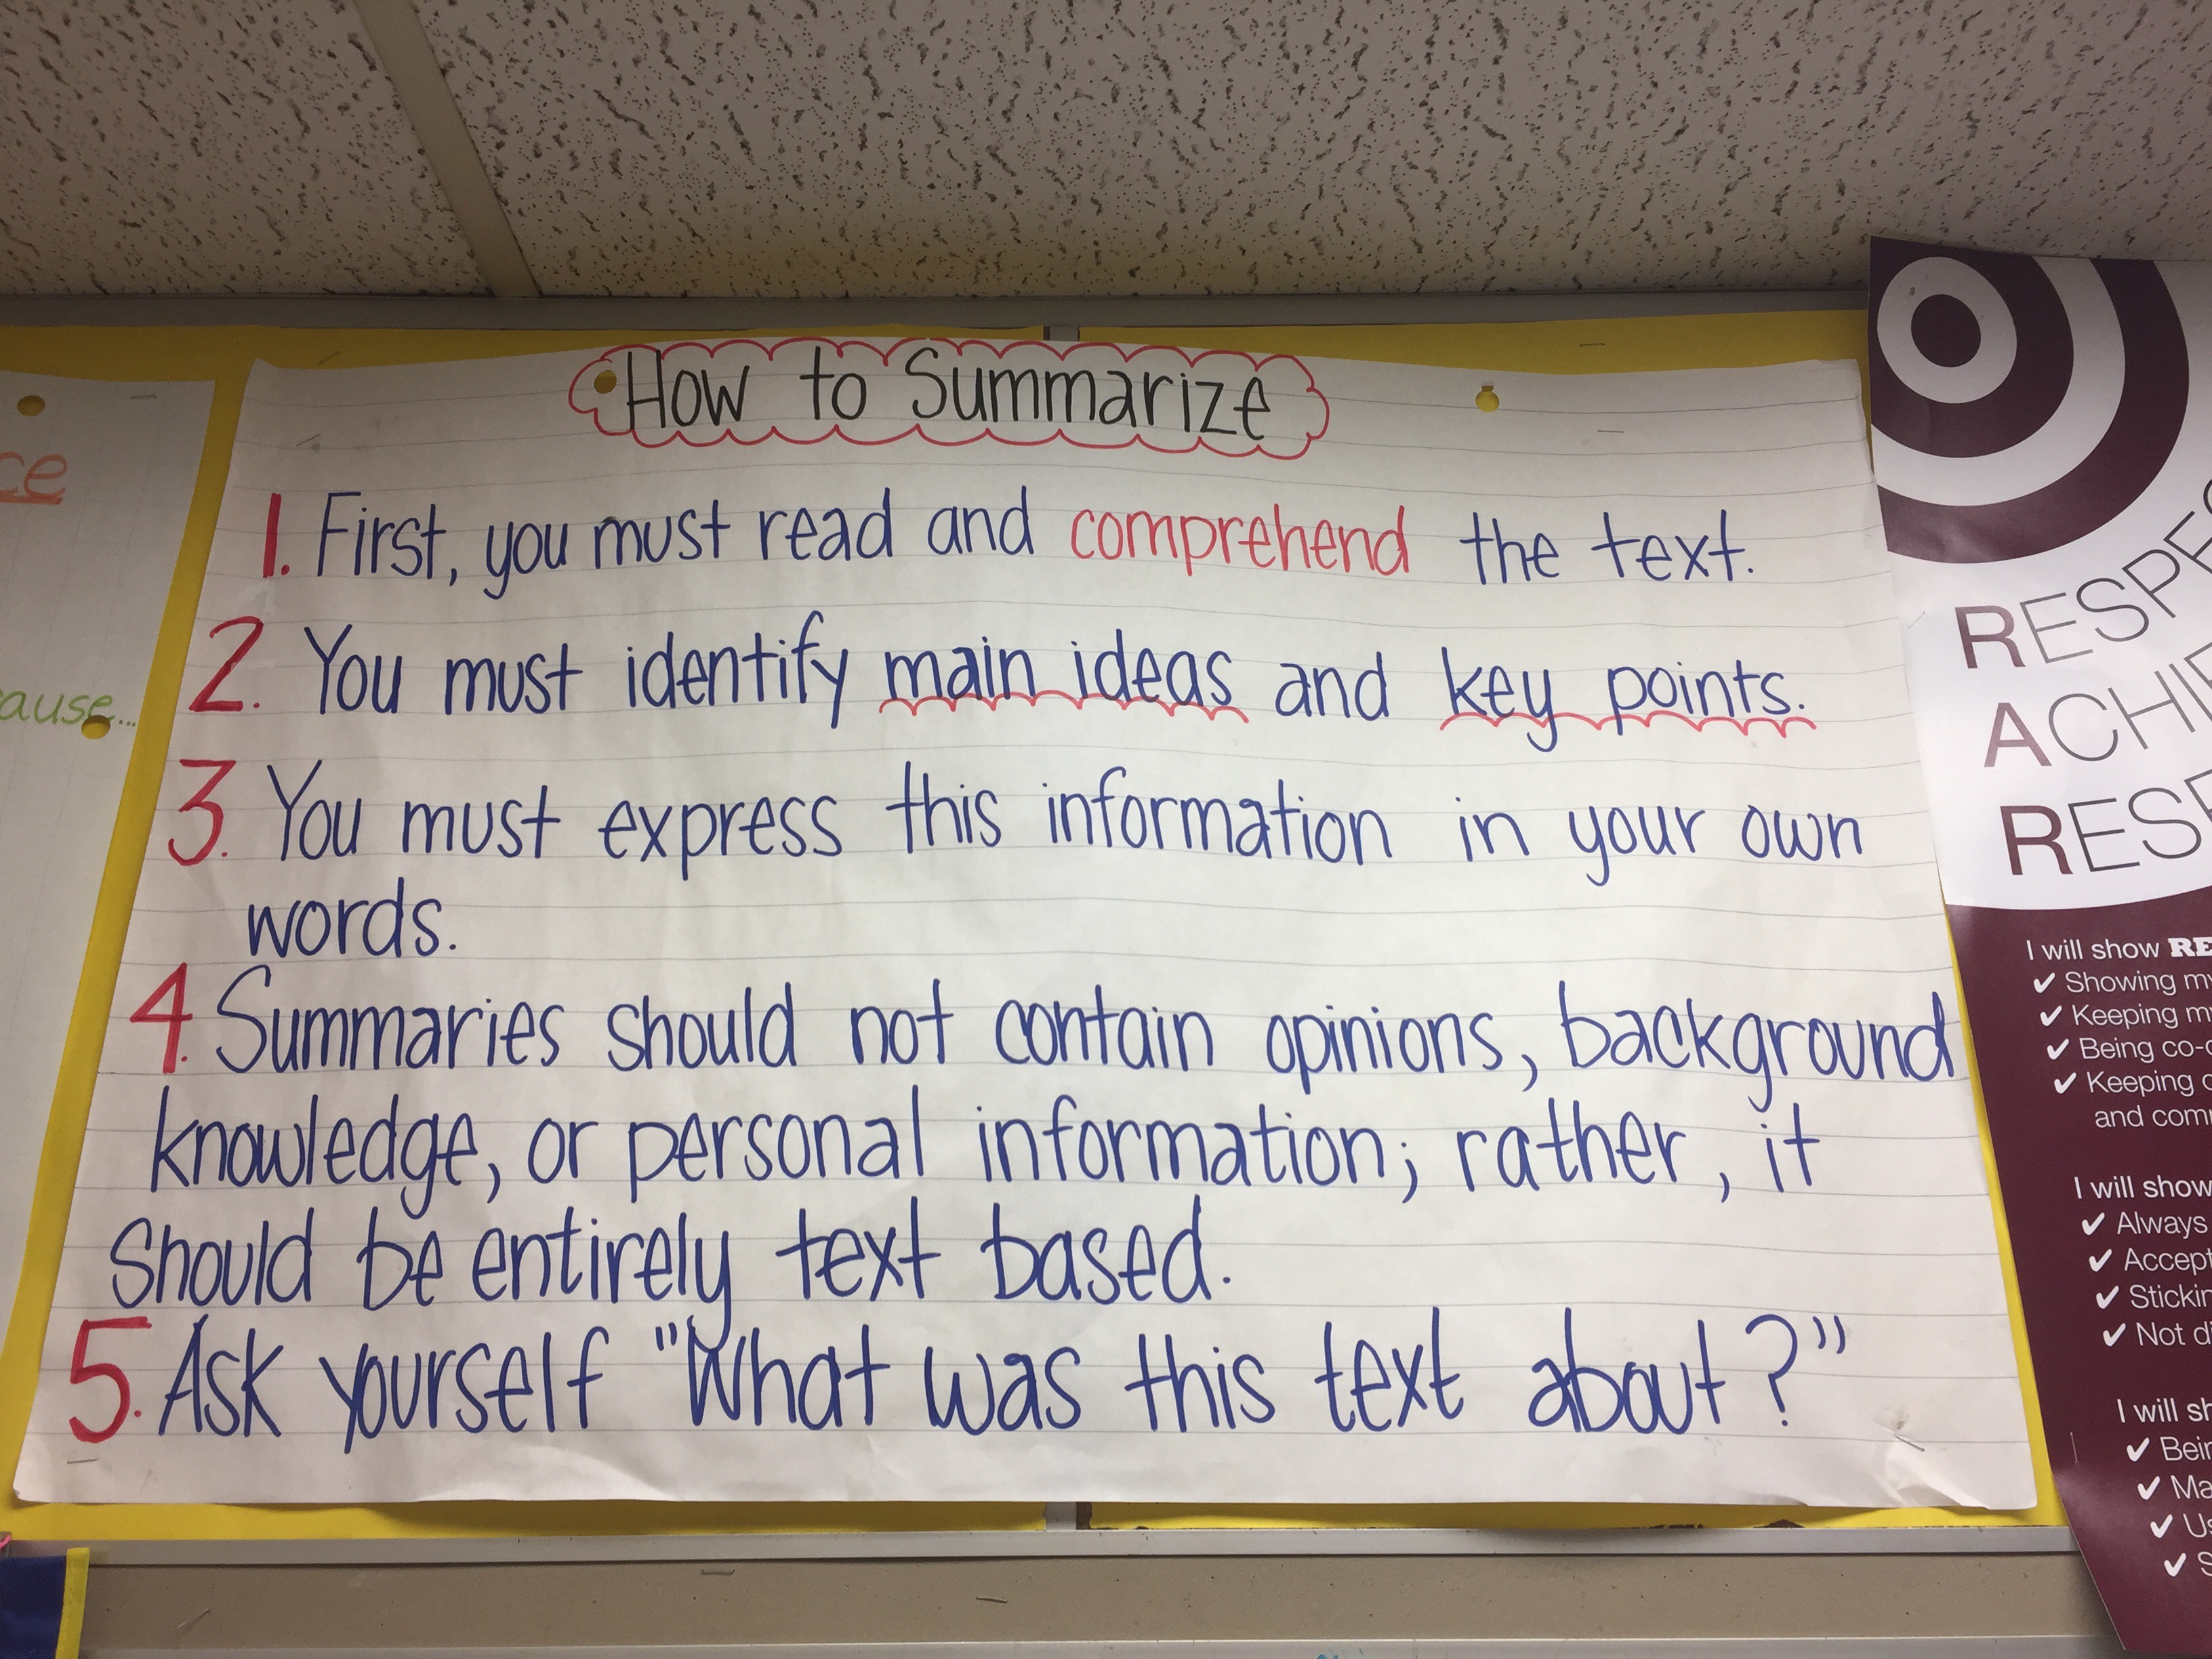 How to Summarize
1. First, you must read and comprehend the text.
2. You must identify main ideas and key points.
3. You must express this information in your own
words.
4. Summaries should not contain opinions, background
knowledge, or personal information; rather, it
should be entirely text based.
5. Ask yourself "What was this text about?"
ce
ause...
I will show
✔ Showing
✔ Keeping
✔ Being
✔ Keeping
and
I will show
✔ Always
✔
✔
✔ Not
I will
✔
✔
✔
✔